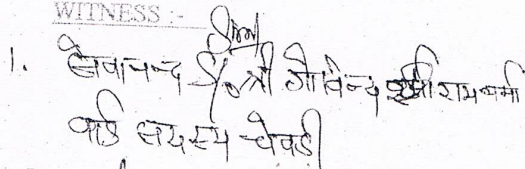 WITNESS :-
1. सेवानन्द S/o श्री गोविन्द राम शर्मा
वार्ड सदस्य चेवडी